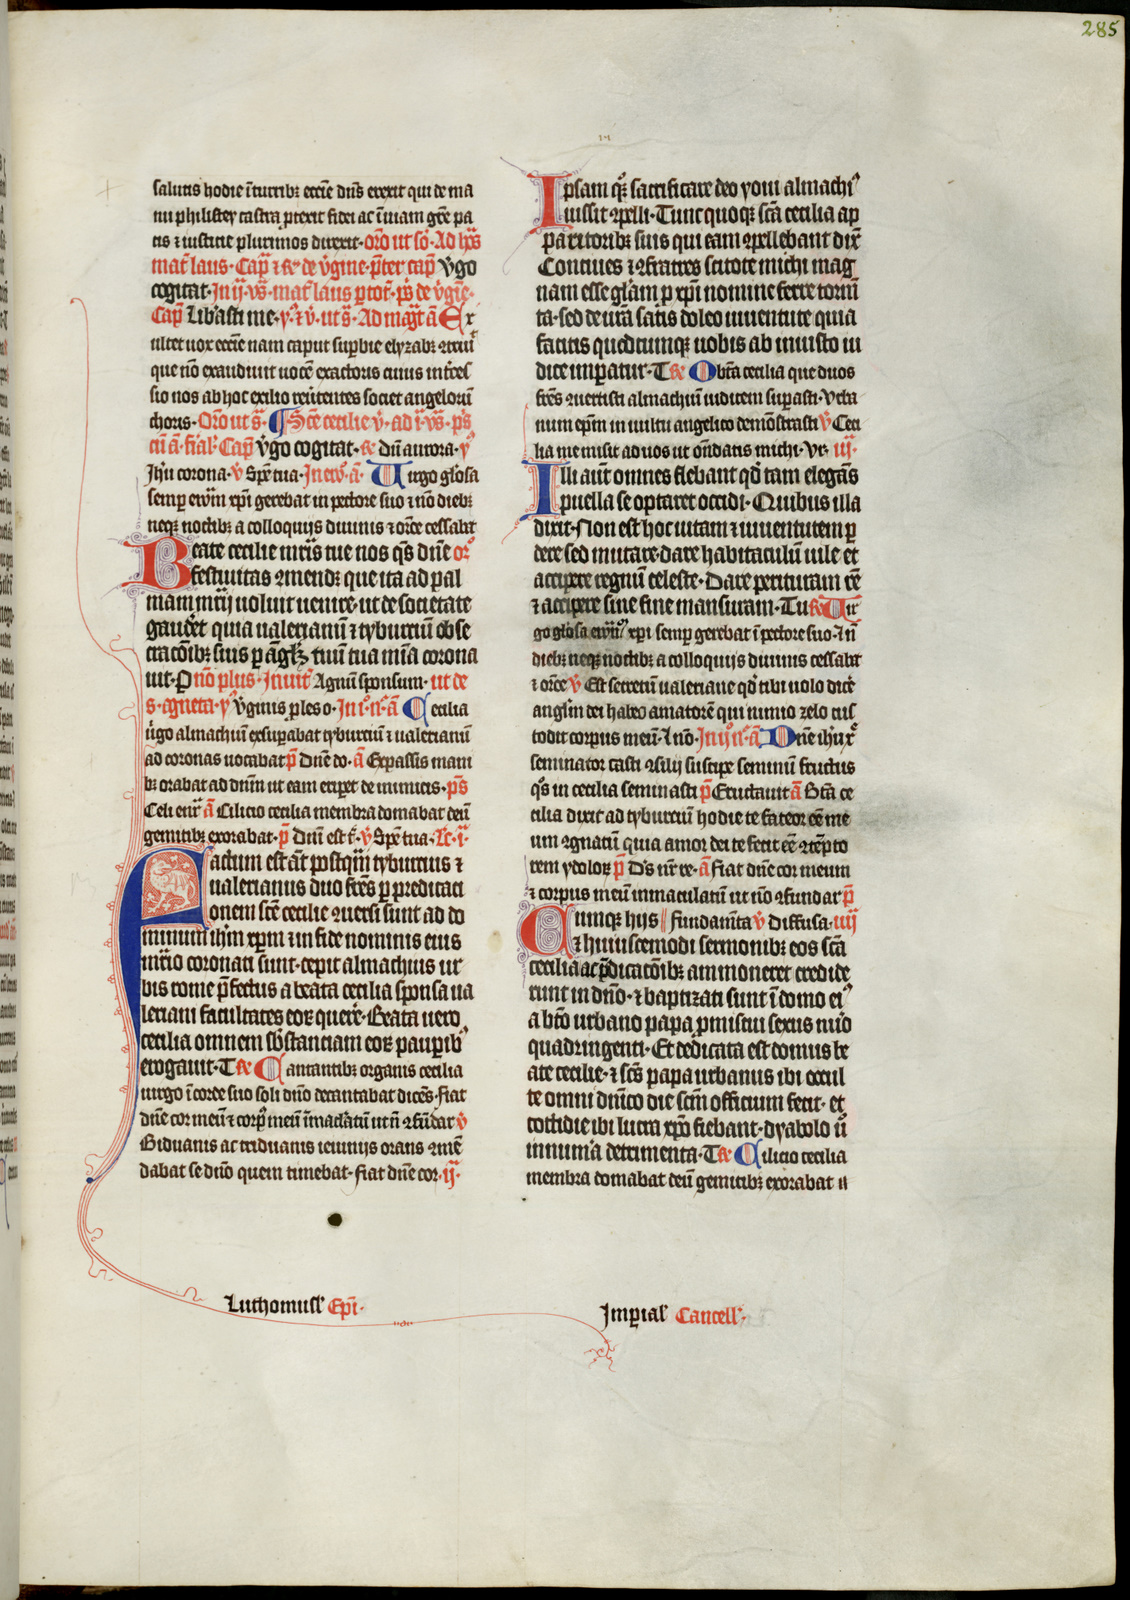 285
salutis hodie ītucribꝫ ecceīe dn̄s erexit qui de ma
nu philistey castra p̄terit fidei ac īuiam gēte pa
cis ⁊ iusticie plurimos direxit· or̄o ut sō· Ad hꝫs
mat̄ laus· Cap̄ ⁊ ꝶ de v̓gine· p̄ter cap̄ v̓go
cogitat· In ij· vs̄· mat̄ laus ꝑ tot̄· ps̄ de v̓gīe·
Cap̄ Libasti me· ꝟ ⁊ v̓· ut s̄· Ad maḡt ā Ex
ultet uox eccīe nam caput suꝑbie
que nō exaudiuit uocē exactoris cuius
sio nos ab hoc exilio societ angeloꝝ
choris· Or̄o ut s̄· ¶ Sc̄e cecilie v̓· ad i· vs̄· ps̄
cū ā· fial̓· Cap̄ v̓go cogitat· ꝶ dū aurora· ꝟ
Jh̄u corona· v̓ Spē tua· In eu̓· ā· Uirgo gl̓osa
semꝑ ewm̄ xp̄i gerebat in pectore suo ⁊ nō diebꝫ
neqꝫ noctibꝫ a colloquijs diuinis ⁊ or̄oē cessabt
Beate cecilie m̄ris tue nos qs̄ dn̄e or̓
festiuitas ꝯmendꝫ que ita ad pal
mam mr̄ij uoluit uenire· ut de societate
gaudēt quia ualerianū ⁊ tyburciū obse
cracōibꝫ suis ꝑ ang̓lꝫ tuū tua mīa corona
uit· P Nō plus· Inuit̄ Agnū sponsum· ut de
s· agneta· ꝟ v̓ginis ꝓles o· In i· n̓· ā Cecilia
u̓go almachiū exsuꝑabat tyburciū ⁊ ualerianū
ad coronas uocabat p̄ Dn̄e do· ā Expassis mani
bꝫ orabat ad dnm̄ ut eam eriꝑet de inimicis· ps̄
Celi enr̄ ā Cilicio cecilia membra domabat deū
gemitibꝫ exorabat· p̄ Dnī est t̄· v̓ Spē tua· Lc̄· i·
Factum est āt postq̄m tyburcius ⁊
ualerianus duo fr̄es ꝑ predicati
onem sc̄e cecilie ꝯuersi sunt ad do
minum ih̄m xp̄m ⁊ in fide nominis eius
mr̄io coronati sunt· cepit almachius ur
bis rome p̄fectus a beata cecilia sponsa ua
leriani facultates eoꝝ quere̓· Beata uero
cecilia omnem sb̓stanciam eoꝝ pauꝑibꝰ
erogauit· T ꝶ Cantantibꝫ organis cecilia
uirgo ī corde suo soli dn̄o decantabat dicēs· fiat
dn̄e cor meū ⁊ corpꝰ meū īmac̄latū ut n̄ ꝯfūdar v̓
Biduanis ac triduanis ieiunijs orans ꝯmē
dabat se dn̄o quem timebat· fiat dn̄e cor· ij·
Ipsam qꝫ sacrificare deo youi almachiꝰ
iussit ꝯpelli· Tunc quoqꝫ sc̄a cecilia ap
paritoribꝫ suis qui eam ꝯpellebant dix̄
Conciues ⁊ ꝯfratres scitote michi mag
nam esse gl̓am ꝓ xp̄i nomine ferre tormē
ta· sed de ur̄a satis doleo iuuentute quia
facitis quodcumqꝫ uobis ab iniusto iu
dice imꝑatur· T ꝶ O btā cecilia que duos
fr̄es ꝯuertisti almachiū iudicem suꝑasti· Vrba
num ep̄m in uultu angelico demōstrasti v̓ Ceci
lia me misit ad uos ut on̄datis michi· Vr· iij·
Illi aūt omnes flebant qd̓ tam elegās
puella se optaret occidi· Quibus illa
dixit· Non est hoc uitam ⁊ iuuentutem ꝑ
dere sed mutare· dare habitaculū uile et
accipere regnū celeste· Dare perituram rē
⁊ accipere sine fine mansuram· Tu ꝶ Uir
go gl̓osa ewm̄ xp̄i semꝑ gerebat ī pectore suo· ⁊ n̄
diebꝫ neqꝫ noctibꝫ a colloquijs diuinis cessabt
⁊ or̄oē v̓ Est secretū ualeriane qd̓ tibi uolo dice̓
angl̓m dei habeo amatorē qui nimio zelo cus
todit corpus meū· ⁊ nō· In ij· n̓· ā Dn̄e ih̄u xp̄e
seminator casti ꝯsilij suscipe seminū fructus
qs̓ in cecilia seminasti p̄ Eructauit ā Btā ce
cilia dixit ad tyburciū hodie te fateor eē me
um ꝯgnatū quia amor dei te fecit eē ꝯtēpto
rem ydoloꝝ p̄ Ds̄ nr̄ re· ā Fiat dn̄e cor meum
⁊ corpus meū inmaculatū ut nō ꝯfundar p̄
Cumqꝫ hijs Fundam̄ta v̓ Diffusa· iiij
⁊ huiuscemodi sermonibꝫ eos sc̄a
cecilia ac p̄dicacōibꝫ ammoneret credide
runt in dn̄o· ⁊ baptizati sunt ī domo eiꝰ
a bt̄o urbano papa ꝓmiscui sexus mīo
quadringenti· Et dedicata est domus be
ate cecilie· ⁊ sc̄s papa urbanus ibi cecul
te omni dn̄ico die scm̄ officium fecit· et
cottidie ibi lucra xp̄o fiebant· dyabolo ū
innumīa detrimenta· T ꝶ Cilicio cecilia
membra domabat deū gemitibꝫ exorabat
Luthomuslꝰ Ep̄i·
Imꝑial̓ Cancell̓·